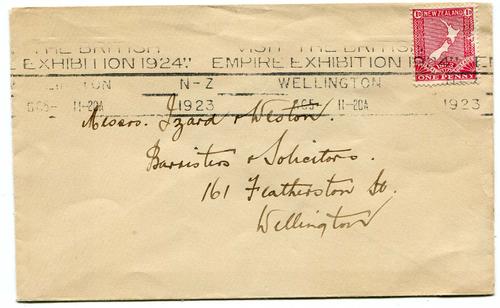 1D NEW ZEALAND 1D
ONE PENNY
THE BRITISH VISIT THE BRITISH
EXHIBITION 1924 EMPIRE EXHIBITION 1924
N-Z WELLINGTON
11-20A 1923 11-20A 1923
Messrs. Izard & Weston.
Barristers & Solicitors.
161 Featherston St.
Wellington